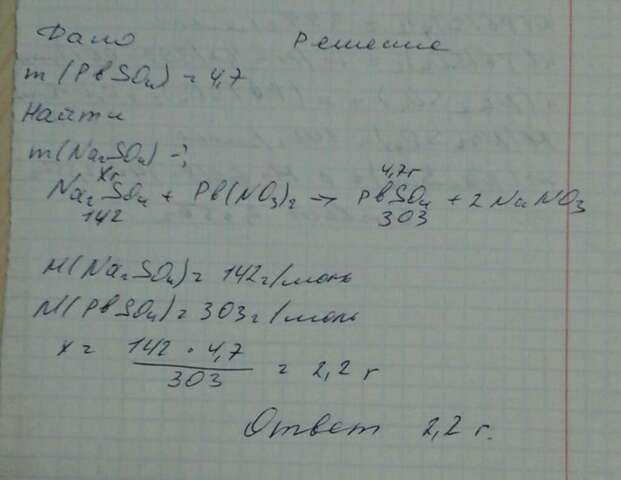 Дано Решение
m(PbSO4) = 4,7
Найти
m(Na2SO4) -?
xг 4,7г
Na2SO4 + Pb(NO3)2 → PbSO4 + 2NaNO3
142 303
M(Na2SO4) = 142г/моль
M(PbSO4) = 303г/моль
x = 142 · 4,7 / 303 = 2,2 г
Ответ 2,2 г.